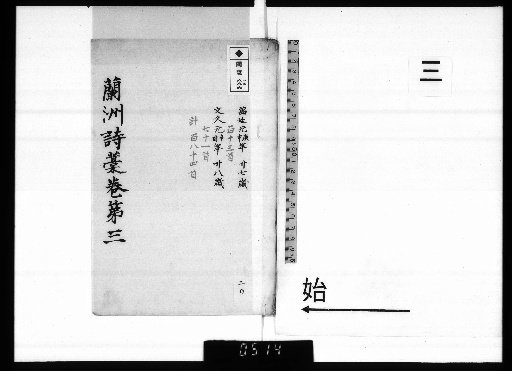 三
始
萬延元庚申年 廿七歳
百十三首
文久元辛酉年 廿八歳
七十一首
計 百八十四首
蘭洲詩藁巻第三
二〇
0514